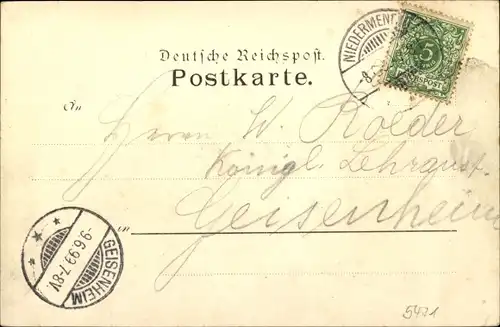 Deutsche Reichspost.
Postkarte.
NIEDERMEN
8.
5
An
Herrn W. Roeder
Königl. Lehranst.
Geisenheim
in
GEISENHEIM
9.6.99.7-8V.
5421